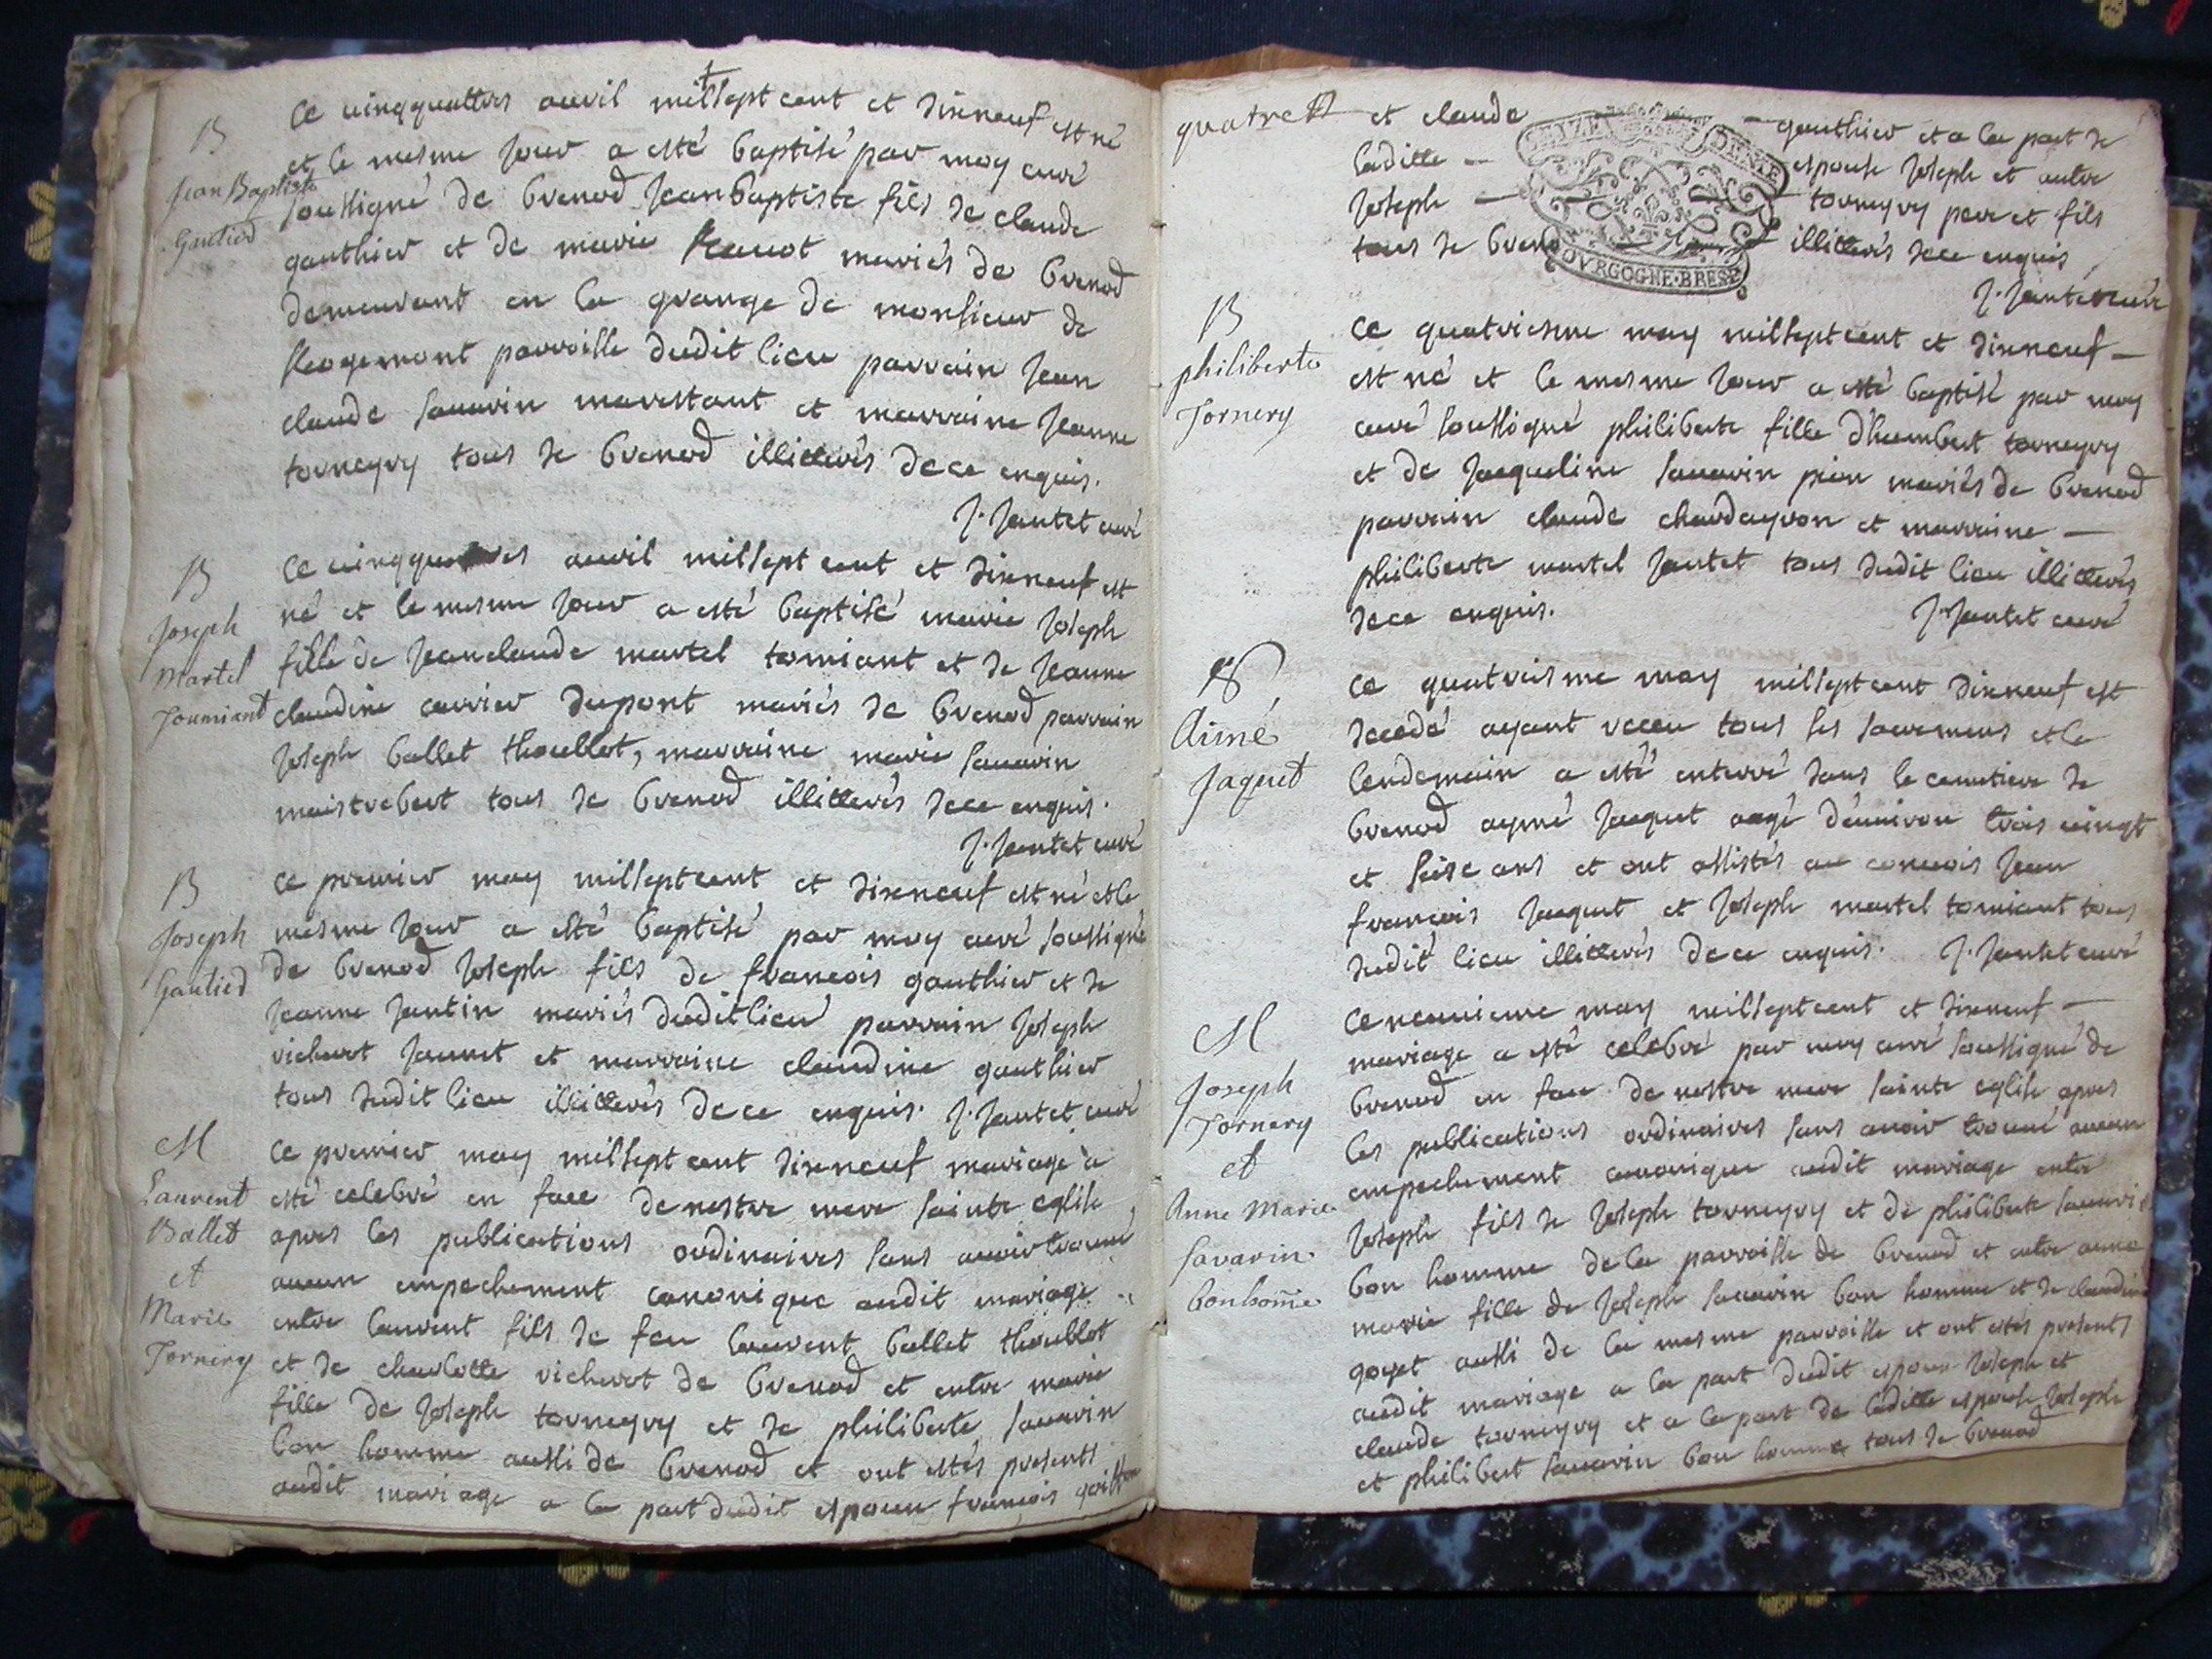 B
Jean Baptiste
Gautied
Ce vingquattres auvil millsept cent et dixneuf est né
et le mesme jour a esté baptisé par moy curé
soussigné de brenod jean baptiste fils de claude
gauthier et de marie mariés de brenod
demeurant en la grange de monsieur de
Rogemont parroisse dudit lieu parrain jean
claude sauarin marestant et marraine jeanne
torneyry tous de brenod illiterés dece enquis.
J. Jantet curé
B
Joseph
Martel
Toumiant
Ce vingquatres auvil millsept cent et dixneuf est
né et le mesme jour a esté baptisé marie joseph
fille de jeanclaude martel tomiant et de jeanne
claudine carrier dupont mariés de brenod parrain
joseph ballet thoublot, marraine marie sauarin
maistrebert tous de brenod illiterés dece enquis.
J. Jantet curé
B
Joseph
Gautied
Ce premier may millsept cent et dixneuf est né et le
mesme jour a esté baptisé par moy curé soussigné
de brenod joseph fils de francois gauthier et de
jeanne jantin mariés dudit lieu parrain joseph
vicherot jaunet et marraine claudine gauthier
tous dudit lieu illiterés dece enquis. J. Jantet curé
M
Laurent
Ballet
et
Marie
Tornery
Ce premier may millsept cent dixneuf mariage a
esté celebré en face de nostre mere sainte eglise
apres les publications ordinaires sans auoir trouué
aucun empechement canonique audit mariage
entre laurent fils de feu laurent ballet thoublot
et de charlotte vicherot de brenod et entre marie
fille de joseph torneyry et de philiberte sauarin
bon homme aussi de brenod et ont estés presents
audit mariage a la part dudit espoux francois
quatre et claude gauthier et a la part de
laditte espouse joseph et autre
joseph torneyry pere et fils
tous de breno illiterés dece enquis
J. Jantet curé
SEIZE DENIE
BOURGOGNE·BRESSE
B
philiberte
Tornery
Ce quatriesme may millsept cent et dixneuf
est né et le mesme jour a esté baptisé par moy
curé soussigné philiberte fille d'humbert torneyry
et de jacqueline sauarin pion mariés de brenod
parrain claude chardayron et marraine
philiberte martel jantet tous dudit lieu illiterés
dece enquis. J. Jantet curé
Aimé
Jaquet
Ce quatriesme may millsept cent dixneuf est
decedé ayant receu tous les sacremens et le
lendemain a esté enterré dans le cemetiere de
brenod aymé jacquet aagé d'enuiron trois vingt
et seise ans et ont assistés au conuois jean
francois jacquet et joseph martel tomiant tous
dudit lieu illiterés dece enquis. J. Jantet curé
M
Joseph
Tornery
et
Anne Marie
Savarin
bonhom̃e
Ce neuuieme may millsept cent et dixneuf
mariage a esté celebré par moy curé soussigné de
brenod en face de nostre mere sainte eglise apres
les publications ordinaires sans auoir trouué aucun
empechement canonique audit mariage entre
joseph fils de joseph torneyry et de philiberte sauari
bon homme de la parroisse de brenod et entre anne
marie fille de joseph sauarin bon homme et de claudine
goyet aussi de la mesme parroisse et ont estés presents
audit mariage a la part dudit espoux joseph et
claude torneyry et a la part de laditte espouse joseph
et philibert sauarin bon homme tous de brenod